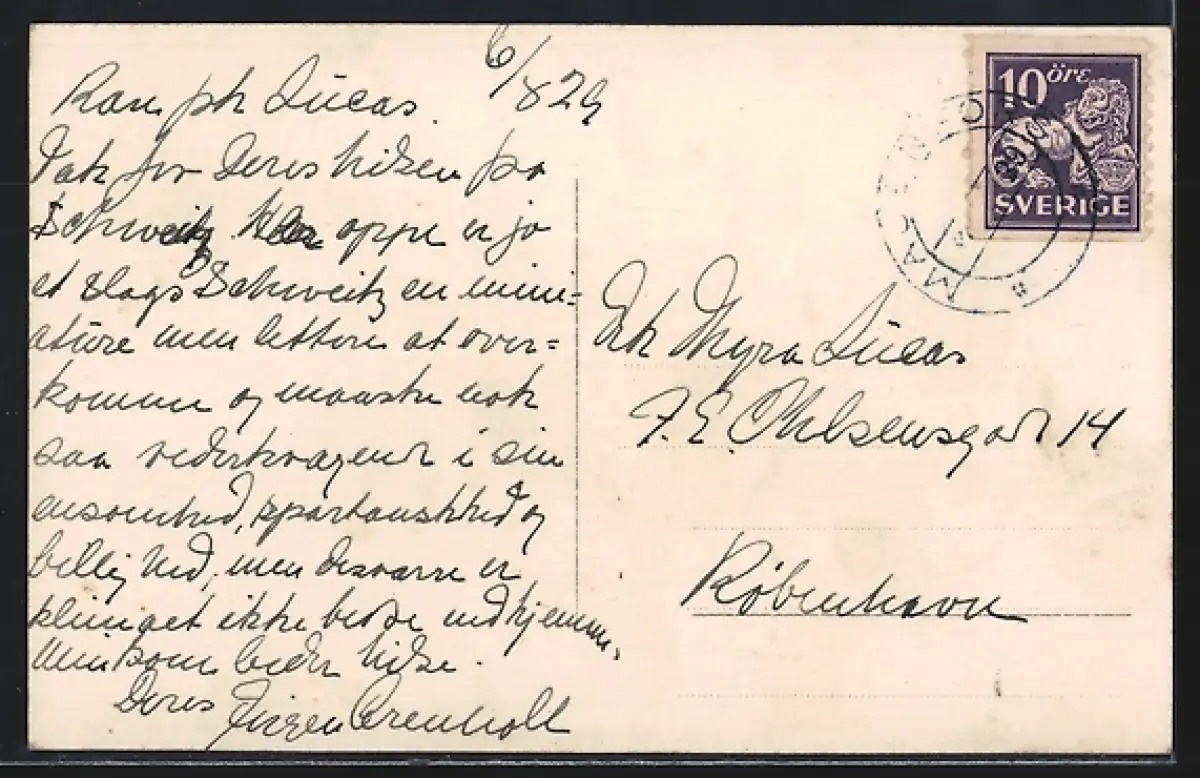 6/8 29
Kære frk Lucas.
Tak for Deres hilsen fra
Schweitz. Her oppe er jo
et slags Schweitz en mini=
ature men lettere at over=
komme og maaske nok
saa vederkvægende i sin
ensomhed, spartanskhed og
billighed, men desværre er
klimaet ikke bedre end hjemme.
Min kone beder hilse.
Deres Jørgen
10 öre
SVERIGE
Frk Myra Lucas
F. E. Ohlsensgade 14
København